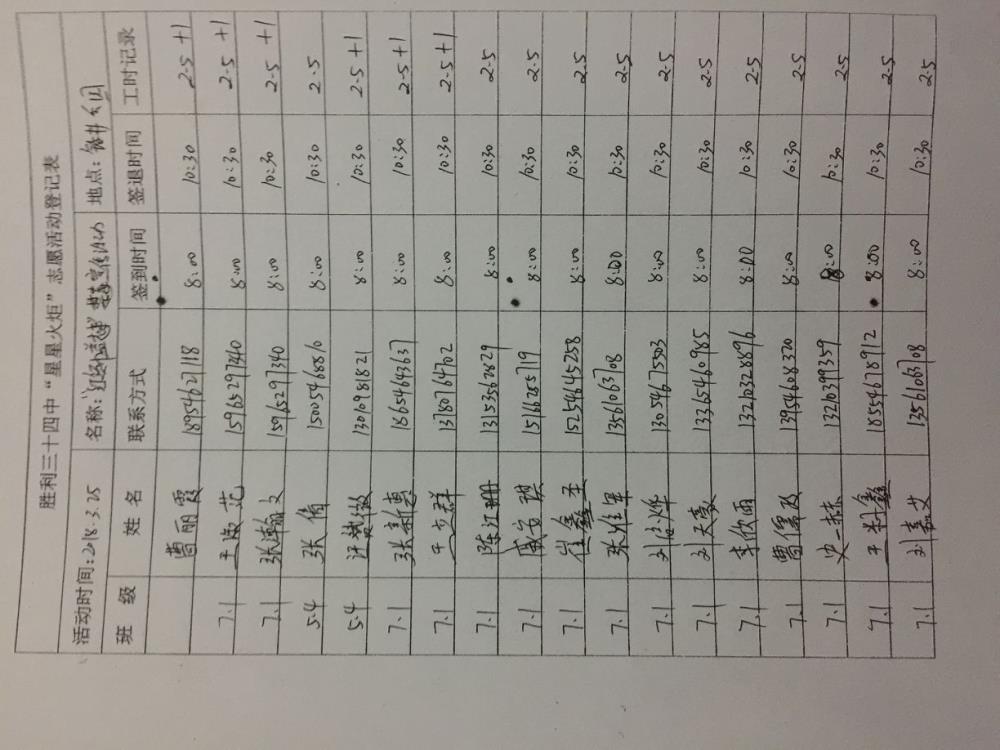 胜利三十四中“星星火炬”志愿活动登记表
活动时间:2018.3.25 名称: 地点:
班 级 姓 名 联系方式 签到时间 签退时间 工时记录
曹丽霞 18954627118 8:00 10:30 2.5+1
7.1 15965297340 8:00 10:30 2.5+1
7.1 张瀚文 15965297340 8:00 10:30 2.5+1
5.4 张倩 15005468810 8:00 10:30 2.5
5.4 13010981821 8:00 10:30 2.5+1
7.1 张新惠 18654643637 8:00 10:30 2.5+1
7.1 13780764702 8:00 10:30 2.5+1
7.1 陈江珊 13153628829 8:00 10:30 2.5
7.1 15166285719 8:00 10:30 2.5
7.1 崔鑫玉 15254645258 8:00 10:30 2.5
7.1 13561063708 8:00 10:30 2.5
7.1 13054675503 8:00 10:30 2.5
7.1 刘天豪 13365460985 8:00 10:30 2.5
7.1 李欣雨 13210328896 8:00 10:30 2.5
7.1 曹儒政 13954608320 8:00 10:30 2.5
7.1 史一赫 13210399359 8:00 10:30 2.5
7.1 18554628912 8:00 10:30 2.5
7.1 13561063708 8:00 10:30 2.5